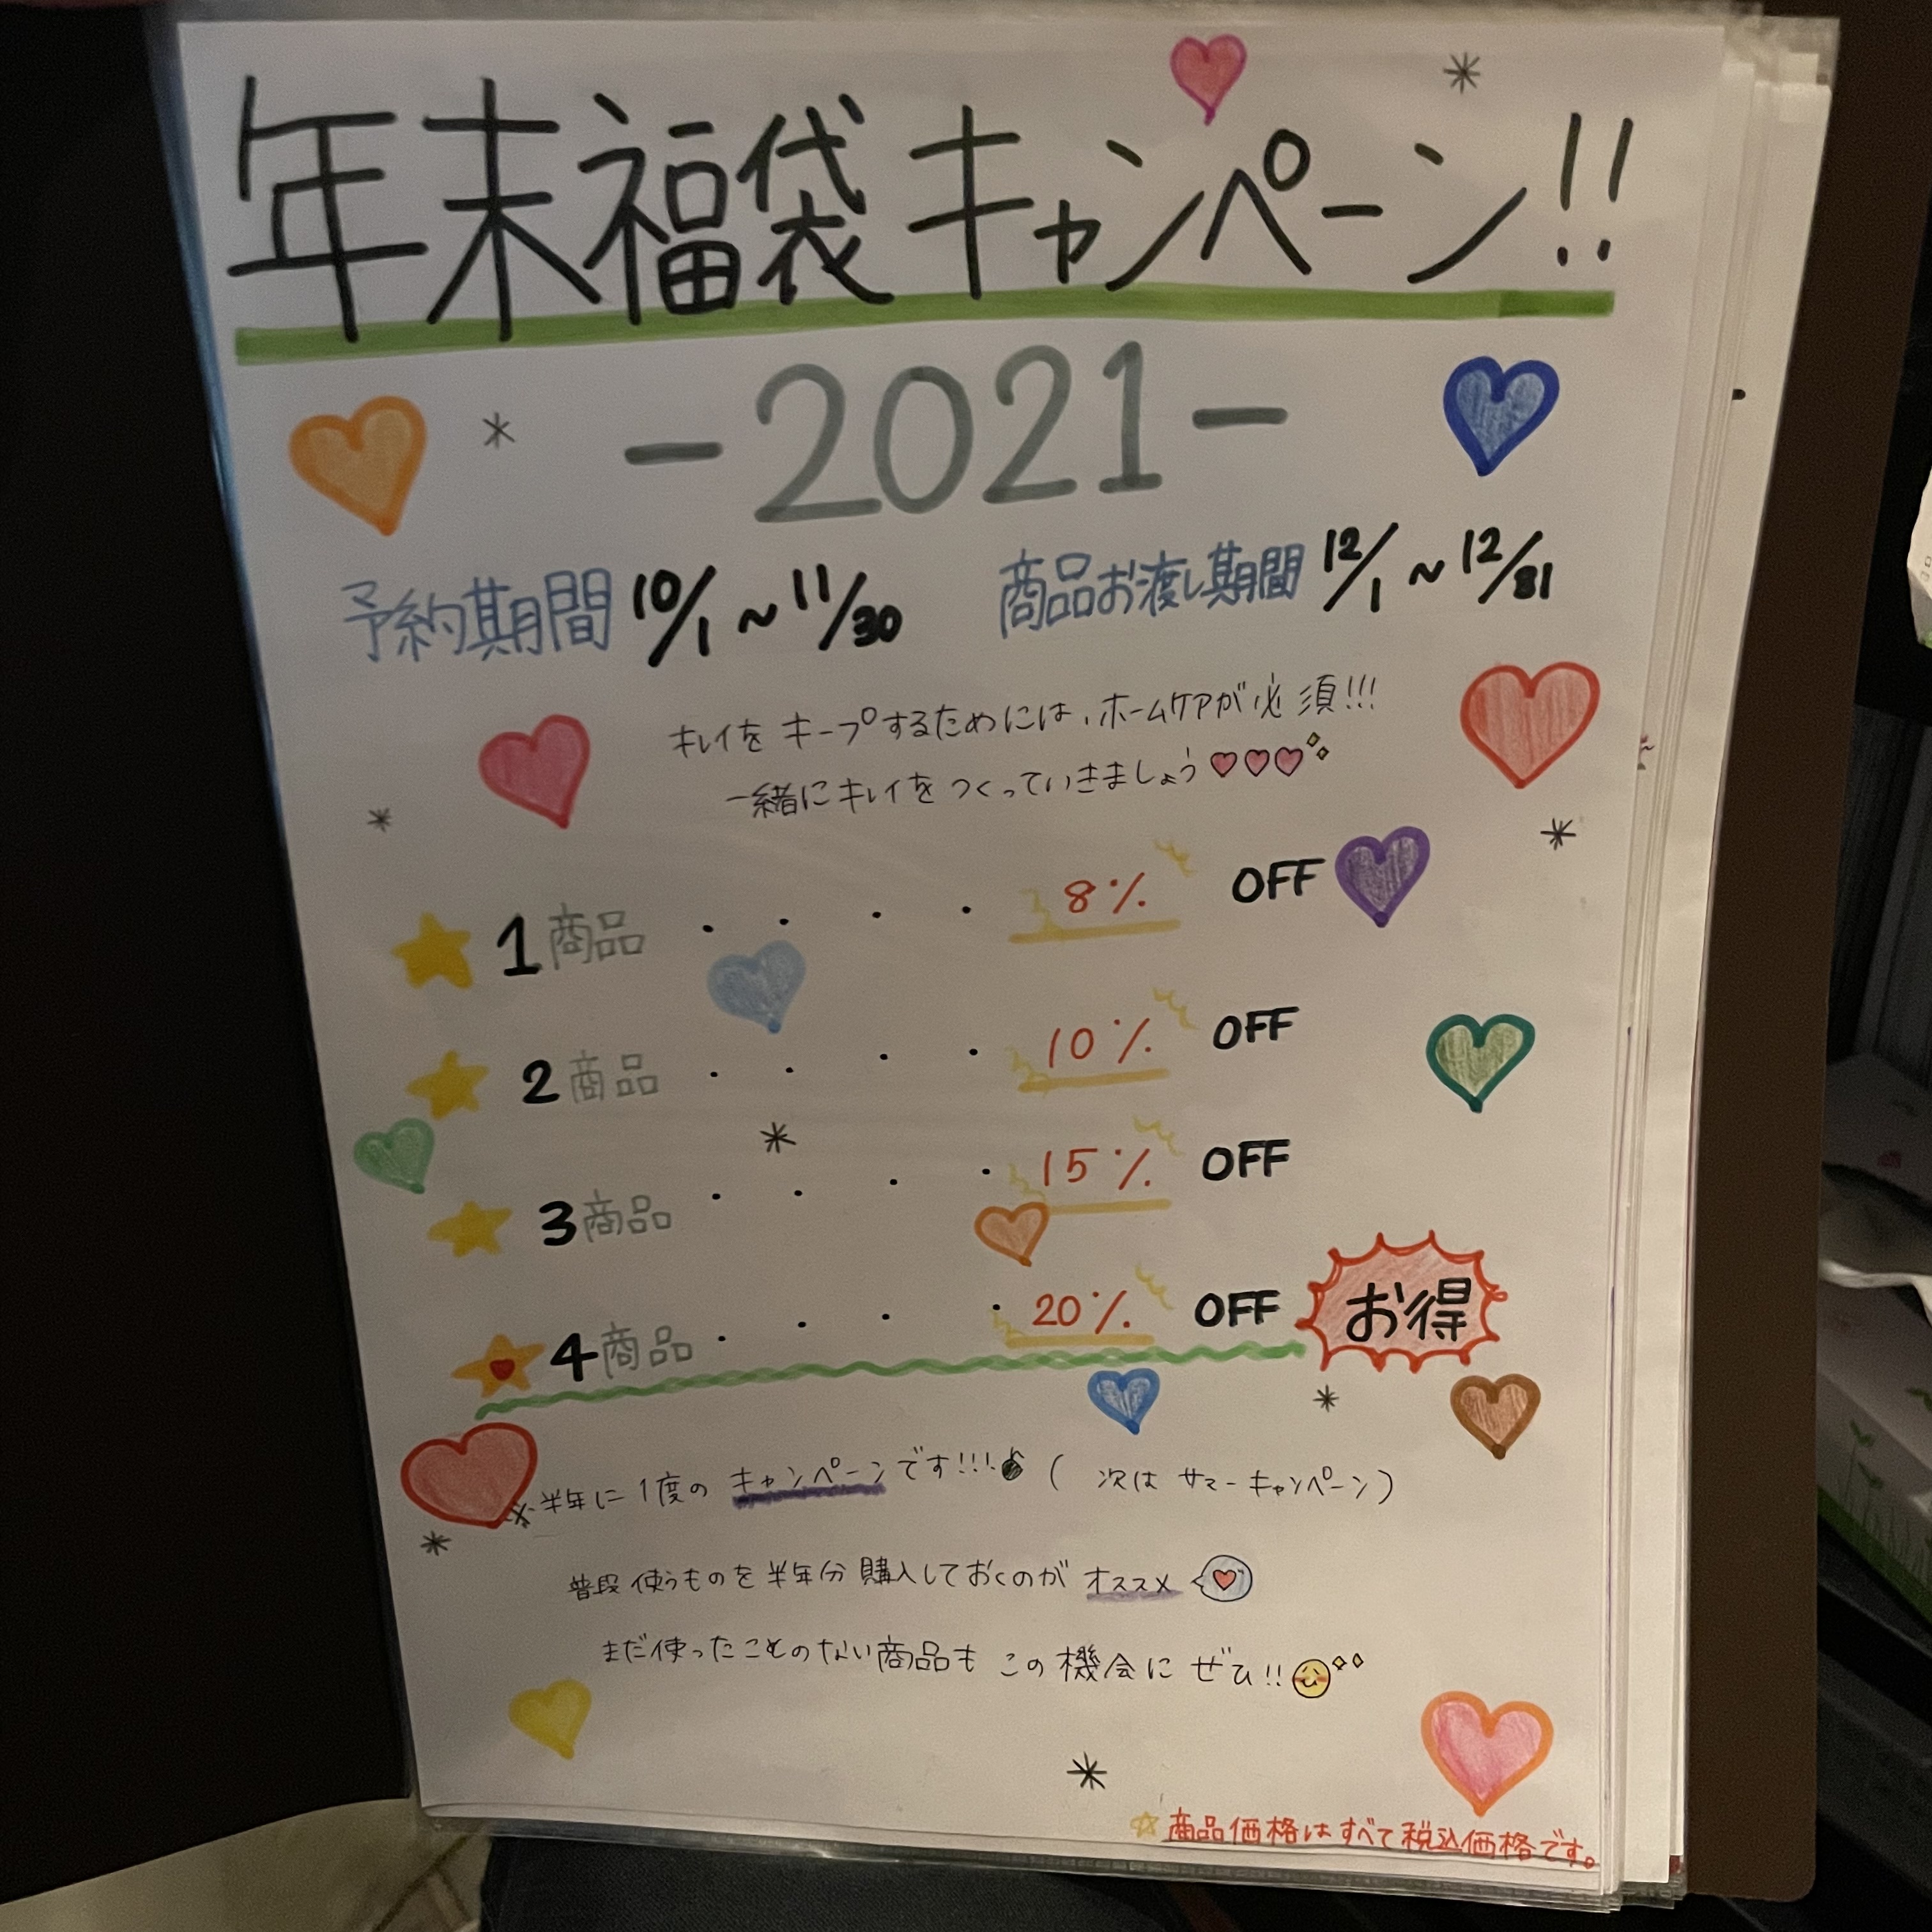 年末福袋キャンペーン!!
-2021-
予約期間 10/1 ~ 11/30 商品お渡し期間 12/1 ~ 12/31
キレイを キープするためには、ホームケアが必須!!!
一緒にキレイをつくっていきましょう♡♡♡
★ 1商品 ・・・・ 8% OFF
★ 2商品 ・・・・ 10% OFF
★ 3商品 ・・・・ 15% OFF
★ 4商品 ・・・・ 20% OFF お得
※半年に1度の キャンペーンです!!!♪ ( 次は サマーキャンペーン)
普段使うものを半年分購入しておくのが オススメ
まだ使ったことのない商品も この機会に ぜひ!!
☆商品価格はすべて税込価格です。